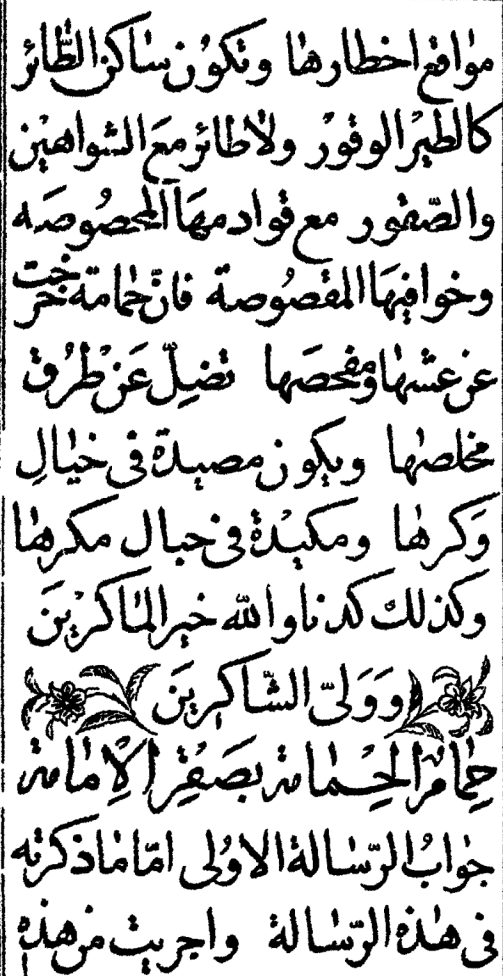 مواقع اخطارها وتكون ساكن الطّائر
كالطير الوقور ولا طائر مع الشواهين
والصّقور مع قوادمها المخصوصه
وخوافيها المقصوصة فانّ حمامة خرجت
عن عشها ومفحصها تضلّ عن طرُق
مخلصها ويكون مصيدة فى خيالِ
وكرها ومكيْدة فى حبال مكرها
وكذلك كدنا والله خير الماكرينَ
وَوَلىّ الشّاكرينَ
الحِمامة بصَقرِ الاِمامة
جوابُ الرّسالة الاوُلى امّا ماذكرته
فى هذه الرّسالة واجريت من هذهِ